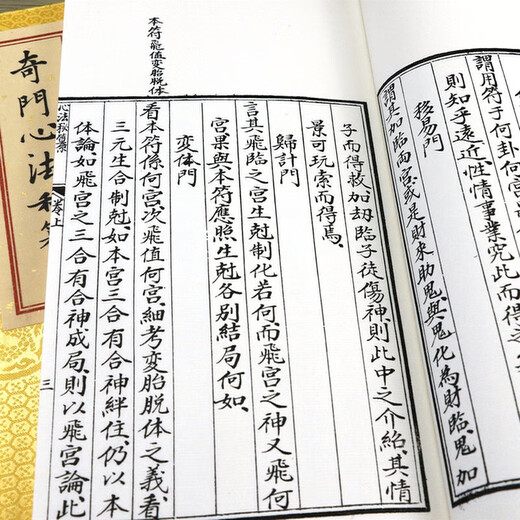 謂用符子何卦何宮
則知乎遠近、性情事業究此而得之
移易門
謂其加臨兩宮、或是財來助鬼、與鬼化為財臨、鬼加
子而得救、加刼臨子徒傷神、則此中之介紹、其情
景可玩索而得焉、
歸計門
言其飛臨之宮生尅制化若何、而飛宮之神又飛何
宮果與本符應照生尅各別結局何如、
変体門
看本符係何宮、次飛值何宮、細考変胎脫体之義、看
三元生合制尅、如本宮三合有合神絆住、仍以本
体論如飛宮之三合有合神成局、則以飛宮論、此
本符飛值変胎脫体
心法秘篹 卷上 三
奇門心法秘